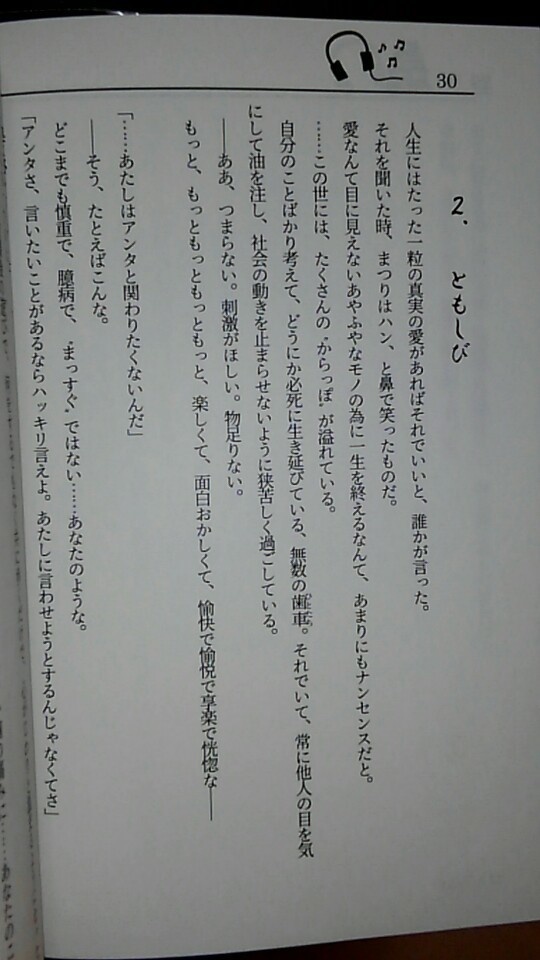 30
2. ともしび
人生にはたった一粒の真実の愛があればそれでいいと、誰かが言った。
それを聞いた時、まつりはハン、と鼻で笑ったものだ。
愛なんて目に見えないあやふやなモノの為に一生を終えるなんて、あまりにもナンセンスだと。
……この世には、たくさんの〝からっぽ〟が溢れている。
自分のことばかり考えて、どうにか必死に生き延びている、無数の歯車。それでいて、常に他人の目を気
にして油を注し、社会の動きを止まらせないように狭苦しく過ごしている。
――ああ、つまらない。刺激がほしい。物足りない。
もっと、もっともっともっともっと、楽しくて、面白おかしくて、愉快で愉悦で享楽で恍惚な――
「……あたしはアンタと関わりたくないんだ」
――そう、たとえばこんな。
どこまでも慎重で、臆病で、〝まっすぐ〟ではない……あなたのような。
「アンタさ、言いたいことがあるならハッキリ言えよ。あたしに言わせようとするんじゃなくてさ」